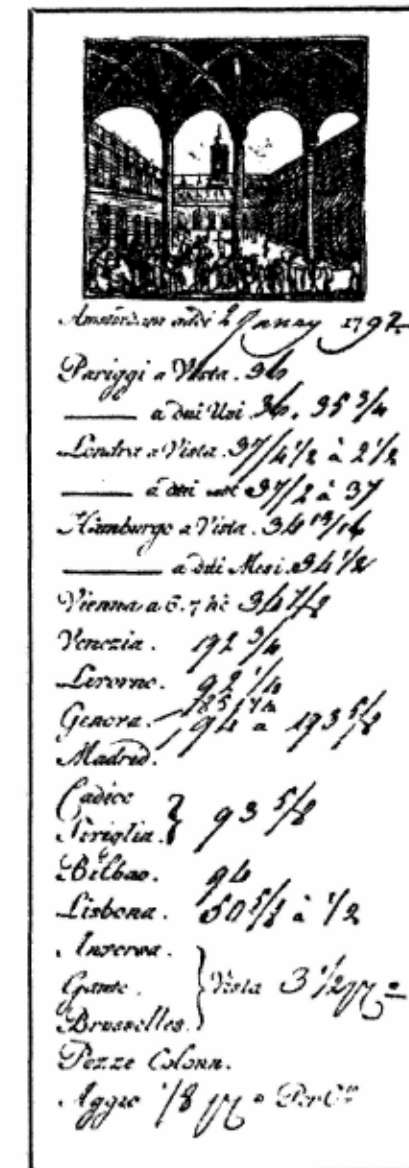 Amsterdam addi 2 Janay 1792
Pariggi a Vista. 36
——— a dui Usi 36. 35 3/4
Londra a Vista. 37/4 1/2 à 2 1/2
——— a dui usi 37/2 à 37
Hamburgo a Vista. 34 13/16
——— a dui Mesi. 34 1/2
Vienna a 6. 7 34 7/8
Venezia. 192 3/4
Livorno. 92 1/4
Genova. 85 1/4
Madrid. 94 a 193 5/8
Cadice
Siviglia. } 93 5/8
Bilbao. 94
Lisbona. 50 5/8 à 1/2
Anversa.
Gante. } Vista 3 1/2
Brusselles.
Pezze Colonn.
Aggio 1/8 Per Cto